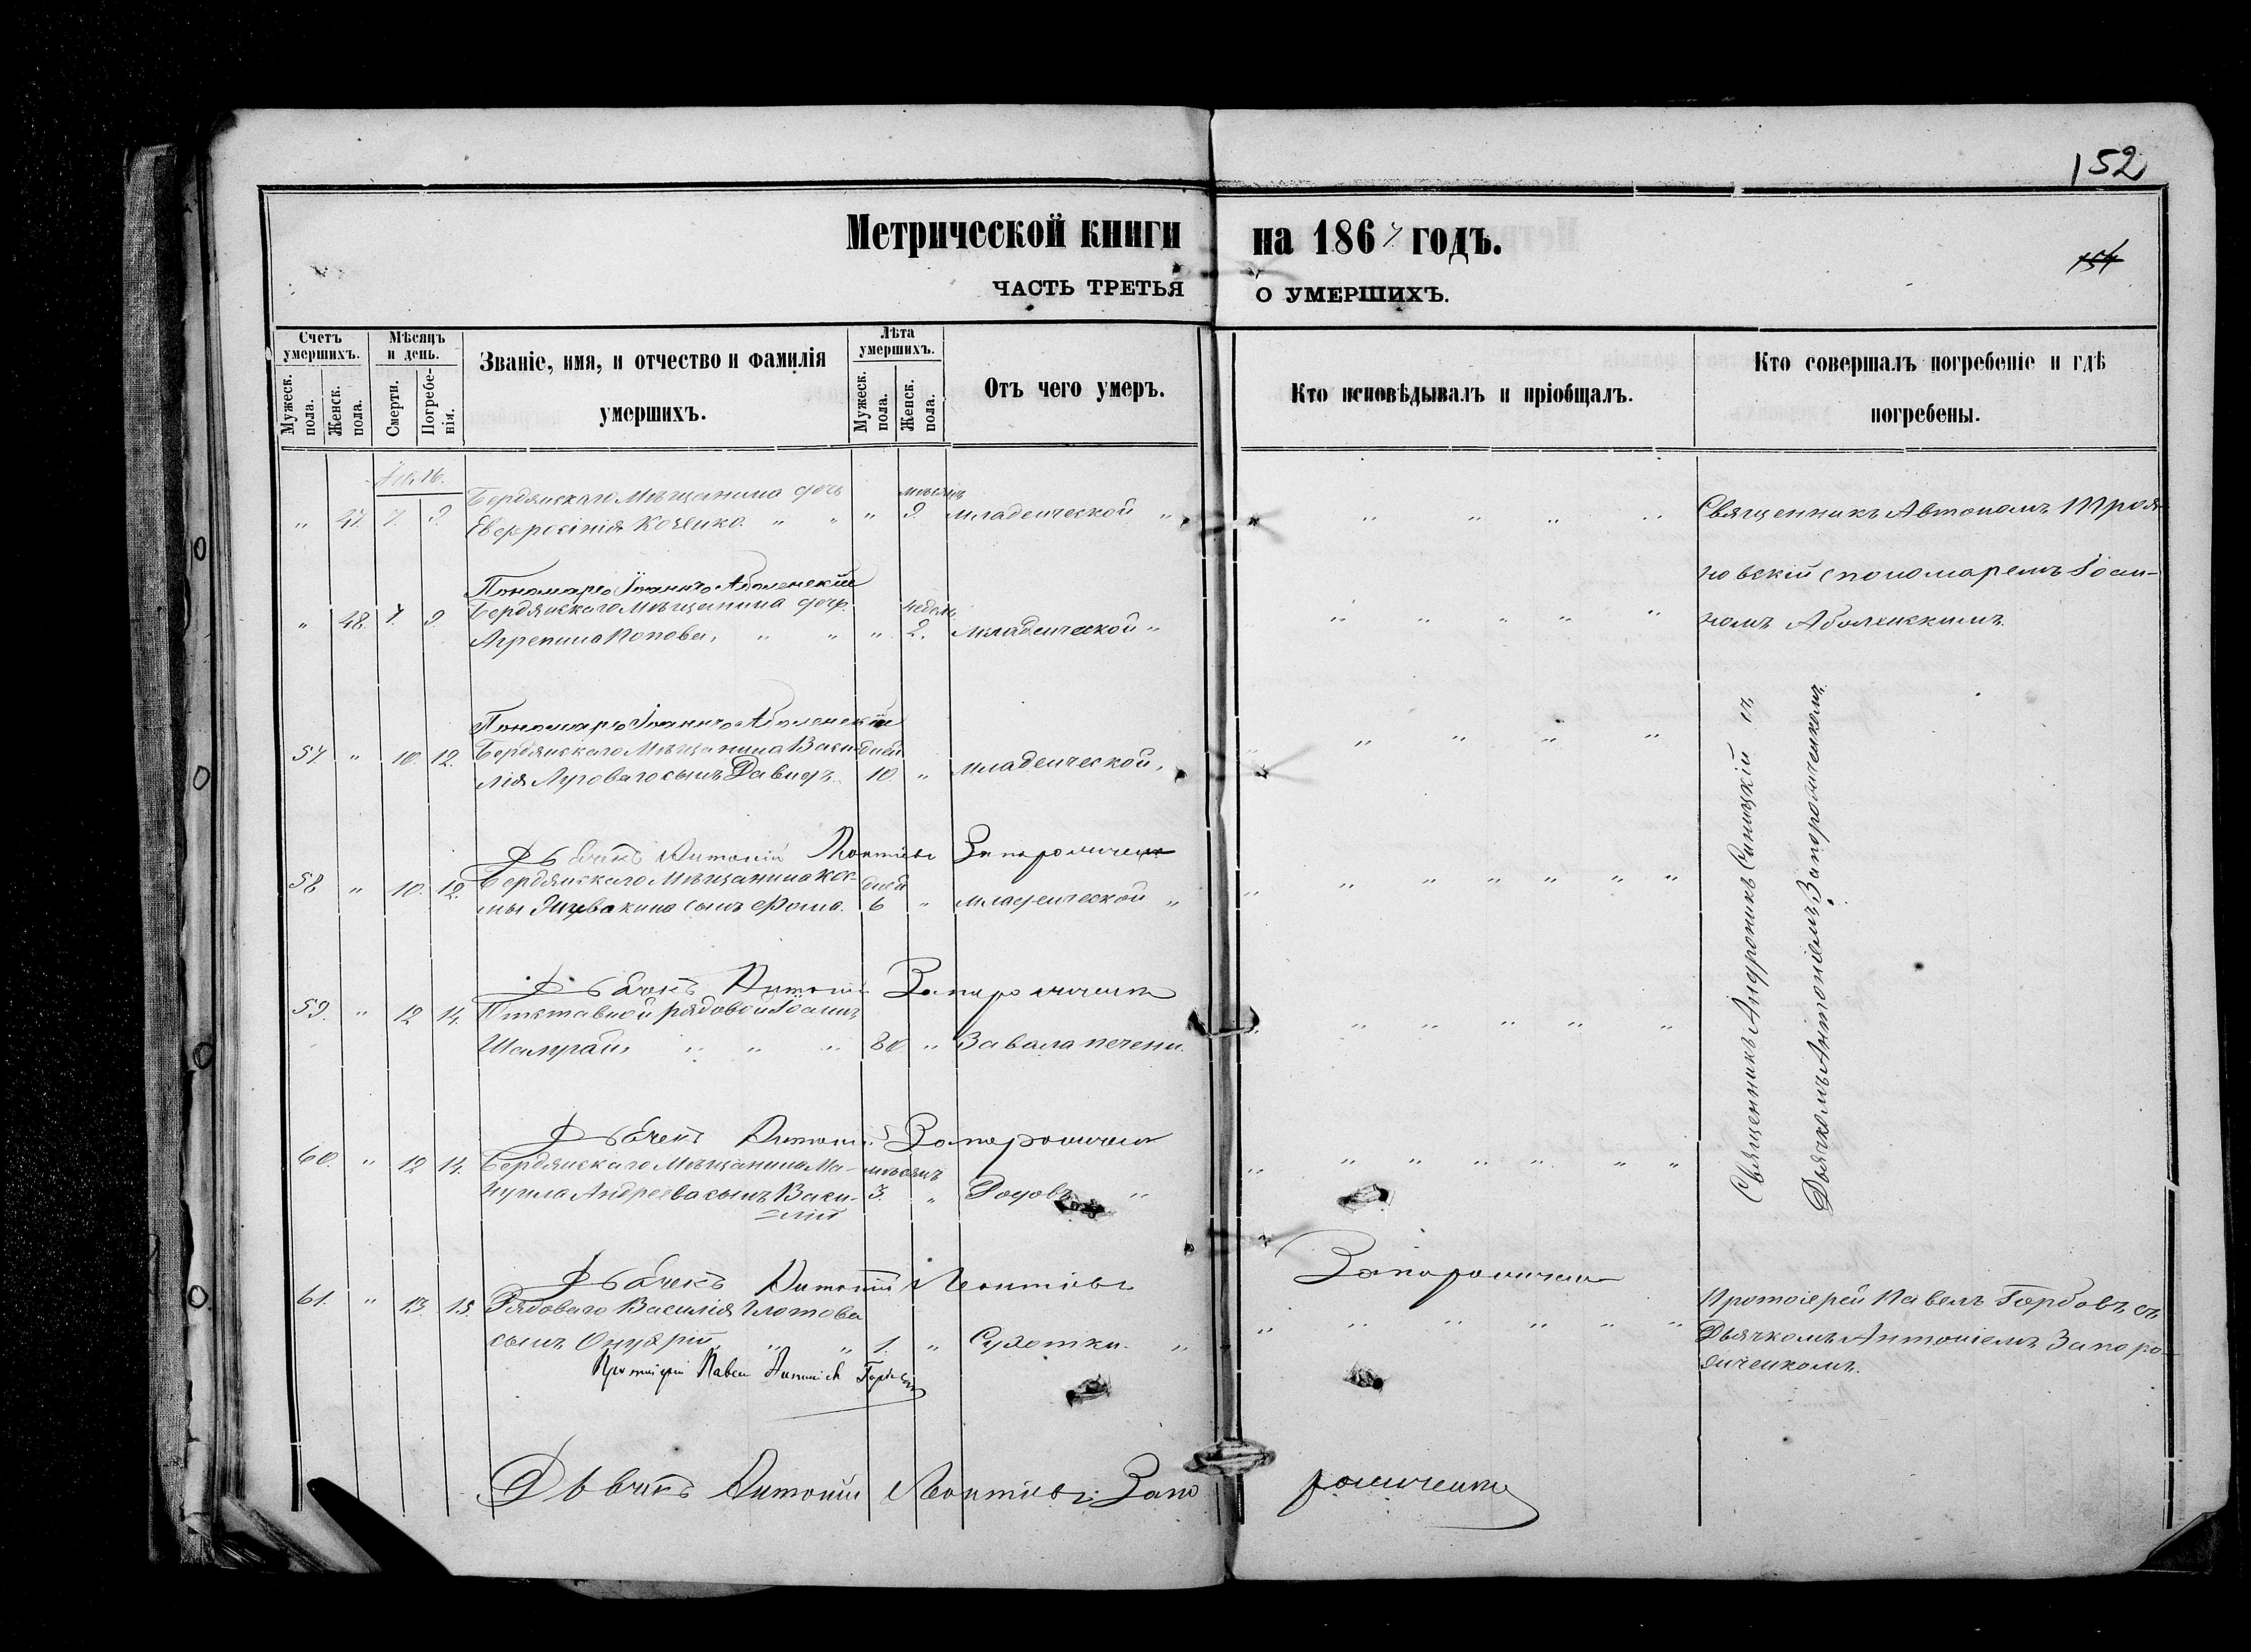 152
Метрической книги на 1867 годъ.
154
ЧАСТЬ ТРЕТЬЯ О УМЕРШИХЪ.
Счетъ умершихъ.
Мужеск. пола.
Женск. пола.
Мѣсяцъ и день.
Смерти.
Погребенія.
Званіе, имя, и отчество и фамилія
умершихъ.
Лѣта умершихъ.
Мужеск. пола.
Женск. пола.
Отъ чего умеръ.
Кто исповѣдывалъ и пріобщалъ.
Кто совершалъ погребеніе и гдѣ
погребены.
Бердянскаго Мѣщанина дочь мѣсяцъ
„ 47. 7. 9. Евфросинія „ „ „ 9. младенческой „ „ „ „ „ Священникъ Автономъ Троя-
новскій с пономаремъ Іоан-
номъ Аболенскимъ.
Пономарь Іоаннъ Аболенскій
Бердянскаго Мѣщанина дочь недель
„ 48. 7. 9. Агрепина Попова, „ „ „ 2. младенческой „ „ „ „ „ „
Пономарь Іоаннъ Аболенскій
57 „ 10. 12. Бердянскаго Мѣщанина Васи- дней
лія Луговаго сынъ Давидъ. 10. „ младенческой, „ „ „ „ „
Священникъ Андроникъ Синицкій съ
Дьячкомъ Антоніемъ Запорожченкомъ.
Дьячекъ Антоній Леонтіевъ Запорожченко
58 „ 10. 12. Бердянскаго Мѣщанина Кос- дней
мы сынъ Фома. 6 „ младенческой „ „ „ „ „ „ „ „
Дьячекъ Антоній Запорожченко
59. „ 12 14. Отставной рядовой Іоаннъ
„ „ „ 80 „ Завала печени. „ „ „ „ „ „
Дьячекъ Антоній Запорожченко
60. „ 12 14. Бердянскаго Мѣщанина Ма- мѣсяцъ
нуила Андреева сынъ Васи- 3. „ „ „ „ „ „ „ „ „
=лій
Дьячекъ Антоній Леонтіевъ Запорожченко
61. „ 13. 15. Рядоваго Василія Глотова
сынъ Онуфрій „ „ 1. „ Сухотки. „ „ „ „ „ „ „ Протоіерей Павелъ Горбовъ съ
Дьячкомъ Антоніемъ Запоро-
жченкомъ.
Протоіерей Павелъ
Дьячекъ Антоній Леонтіевъ Запорожченко